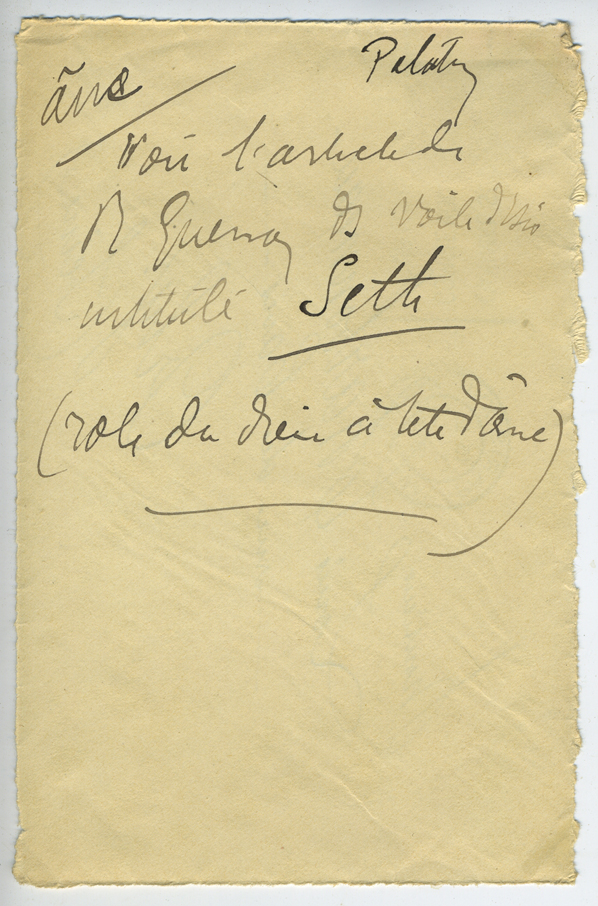 âne
Palatin
Voir l'article de
R Guenon ds Voile d'Isis
intitulé Seth
(role du dieu à tete d'âne)